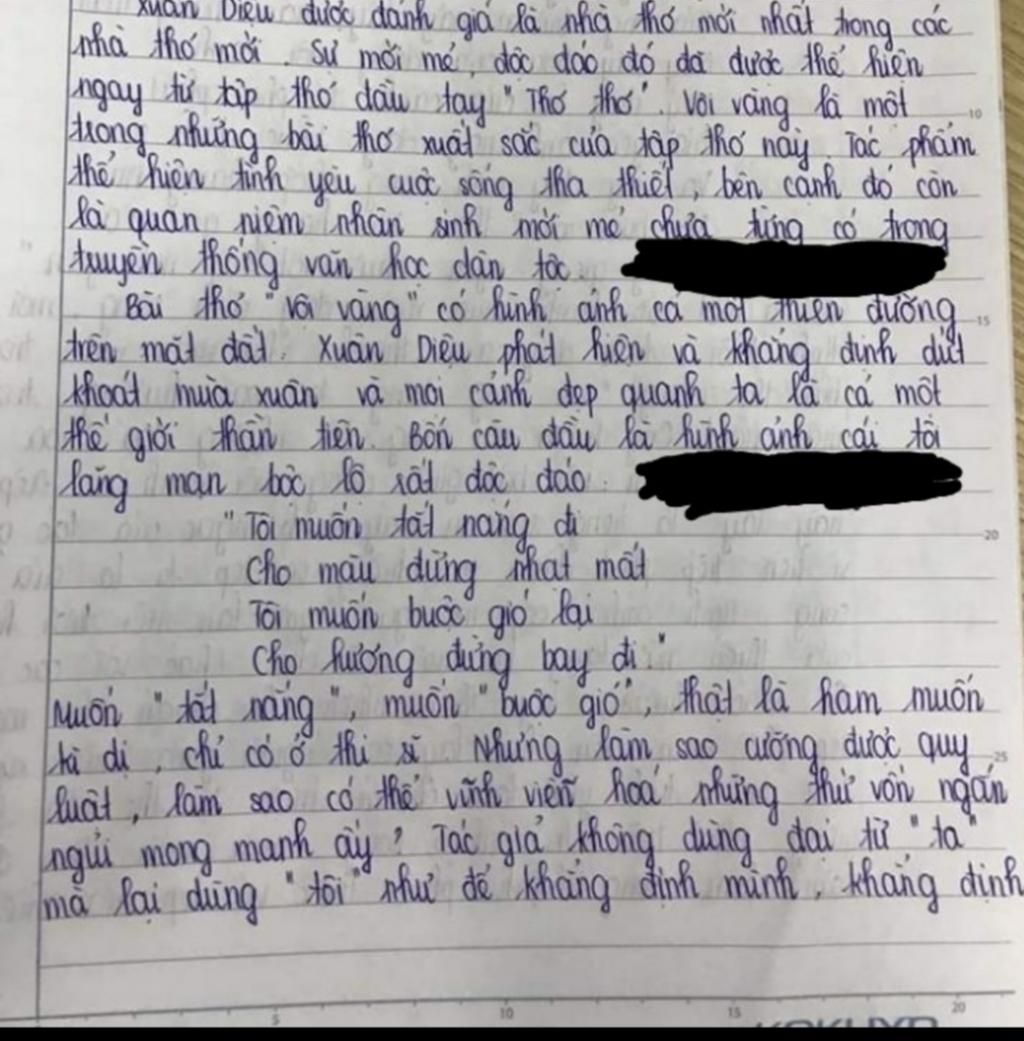 Xuân Diệu được đánh giá là nhà thơ mới nhất trong các
nhà thơ mới. Sự mới mẻ, độc đáo đó đã được thể hiện
ngay từ tập thơ đầu tay "Thơ thơ". Vội vàng là một
10
trong những bài thơ xuất sắc của tập thơ này. Tác phẩm
thể hiện tình yêu cuộc sống tha thiết, bên cạnh đó còn
là quan niệm nhân sinh mới mẻ chưa từng có trong
truyền thống văn học dân tộc.
Bài thơ "Vội vàng" có hình ảnh cả một thiên đường
15
trên mặt đất. Xuân Diệu phát hiện và khẳng định dứt
khoát mùa xuân và mọi cảnh đẹp quanh ta là cả một
thế giới thần tiên. Bốn câu đầu là hình ảnh cái tôi
lãng mạn bộc lộ rất độc đáo.
"Tôi muốn tắt nắng đi
20
Cho màu đừng nhạt mất
Tôi muốn buộc gió lại
Cho hương đừng bay đi"
Muốn "tắt nắng", muốn "buộc gió", thật là ham muốn
kì dị, chỉ có ở thi sĩ. Nhưng làm sao cưỡng được quy
25
luật, làm sao có thể vĩnh viễn hoá những thứ vốn ngắn
ngủi mong manh ấy? Tác giả không dùng đại từ "ta"
mà lại dùng "tôi" như để khẳng định mình, khẳng định
5 10 15 20